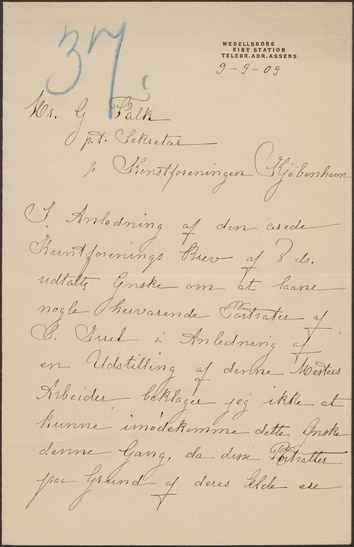 37
WEDELLSBORG
EIBY STATION
TELEGR. ADR. ASSENS
9-9-09
Hr. G Falk
p.t. Sekretær
Kunstforeningen Kjøbenhavn
I Anledning af den ærede
Kunstforenings Brev af 8 ds.
udtalte Ønske om at laane
nogle herværende Portræter af
J. Juel i Anledning af
en Udstilling af denne Mesters
Arbeider beklager jeg ikke at
kunne imødekomme dette Ønske
denne Gang, da disse Portrætter
paa Grund af deres Ælde ere